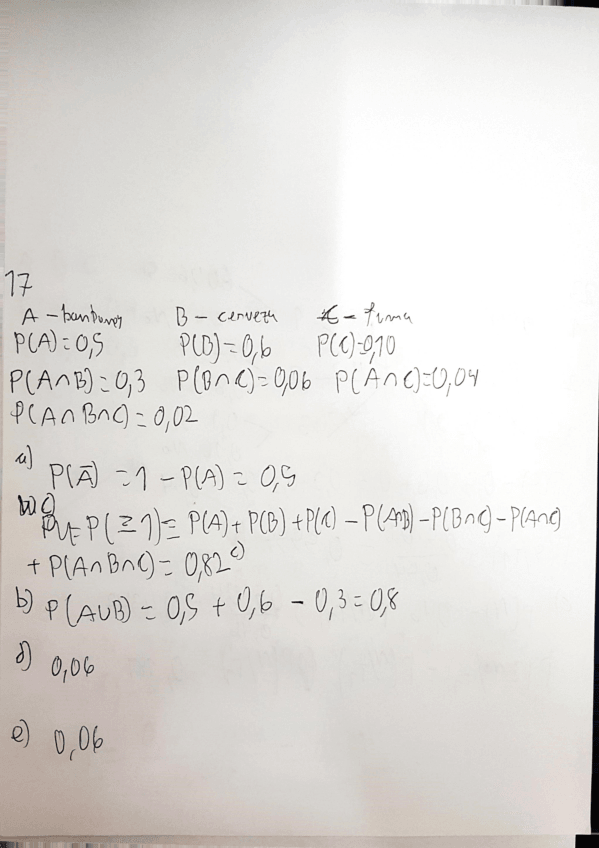 17
A - B - cerveza C - fuma
P(A) = 0,5 P(B) = 0,6 P(C) = 0,10
P(A∩B) = 0,3 P(B∩C) = 0,06 P(A∩C) = 0,04
P(A∩B∩C) = 0,02
a) P(Ā) = 1 - P(A) = 0,5
c) P(≥1) = P(A) + P(B) + P(C) - P(A∩B) - P(B∩C) - P(A∩C)
+ P(A∩B∩C) = 0,82 c)
b) P(A∪B) = 0,5 + 0,6 - 0,3 = 0,8
d) 0,06
e) 0,06